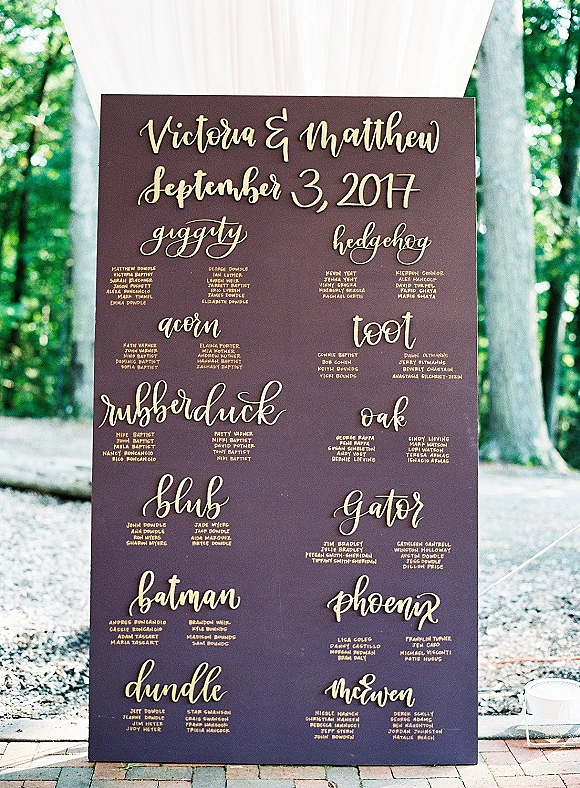 Victoria & Matthew
September 3, 2017
giggity
MATTHEW DOWDLE
VICTORIA BAPTIST
SARAH BLECHNER
JASON PUSKETT
ALEXA RONCANCIO
MARK TIMMIL
EMMA DOWDLE
GEORGE DOWDLE
IAN LUTHER
LAUREN
JARRETT BAPTIST
ERIC
JAMES DOWDLE
ELIZABETH DOWDLE
hedgehog
KEVIN YENT
JENNA YENT
VINNY
KIMBERLY
RACHAEL CURTIS
KIERRON CONNOR
ALEX HANCOCK
DAVID TURPEL
FARID GHAYA
MARIE GHAYA
acorn
KATE VARNER
JOHN VARNER
NINO BAPTIST
DOMINIC BAPTIST
SOFIA BAPTIST
ELAINA PORTER
MIA KUTNER
ANDREW KUTNER
HANNAH BAPTIST
ZACHARY BAPTIST
toot
CONNIE BAPTIST
BOB COHEN
KEITH BOUNDS
VICKI BOUNDS
DAWN OLTMANNS
JERRY OLTMANNS
BEVERLY CHASTAIN
ANASTASIA GILCHRIST-ZEZIN
rubberduck
MIKE BAPTIST
JOHN BAPTIST
PAULA BAPTIST
NANCY RONCANCIO
RICO RONCANCIO
PATTY VARNER
MIMMI BAPTIST
DAVID POTNER
TONY BAPTIST
NIKI BAPTIST
oak
GEORGE RAPPA
RENE RAPPA
SUSAN SINGLETON
ANDY VOGT
BERNIE LIEVING
CINDY LIEVING
MARK WATSON
LORI WATSON
TERESA ARMAS
IGNACIO ARMAS
blub
JOHN DOWDLE
ANA DOWDLE
RON MYERS
SHARON MYERS
JADE MYERS
JANE DOWDLE
AIDA MARQUEZ
BRYCE DOWDLE
Gator
JIM BRADLEY
JULIE BRADLEY
MEGAN SMITH-SHERIDAN
TIFFANY SMITH-SHERIDAN
CATHLEEN CANTRELL
WINSTON HOLLOWAY
AUSTIN DOWDLE
JESS DOWDLE
DILLON PRICE
batman
ANDRES RONCANCIO
CASSIE RONCANCIO
ADAM TAGGART
MARIA TAGGART
BRANDON WEIK
KYLE BOUNDS
MADISON BOUNDS
SAM BOUNDS
phoenix
LISA COLES
DANNY CASTILLO
MORGAN REDMAN
BRAM DALY
FRANKLIN TURNER
JEN CARO
MICHAEL VISCONTI
KATIE HUGUS
dundle
JEFF DOWDLE
JEANNE DOWDLE
JIM HEYER
JUDY HEYER
STAR SWANSON
CRAIG SWANSON
FRANK HANCOCK
TRICIA HANCOCK
mcEwen
NICOLE HANSEN
CHRISTIAN HANSEN
REBECCA IANNUCCI
JEFF STERN
JOHN BOWDEN
DEREK SCULLY
GEORGE ADAMS
BEN HANSTEIN
JORDAN JOHNSTON
NATALIE BEACH